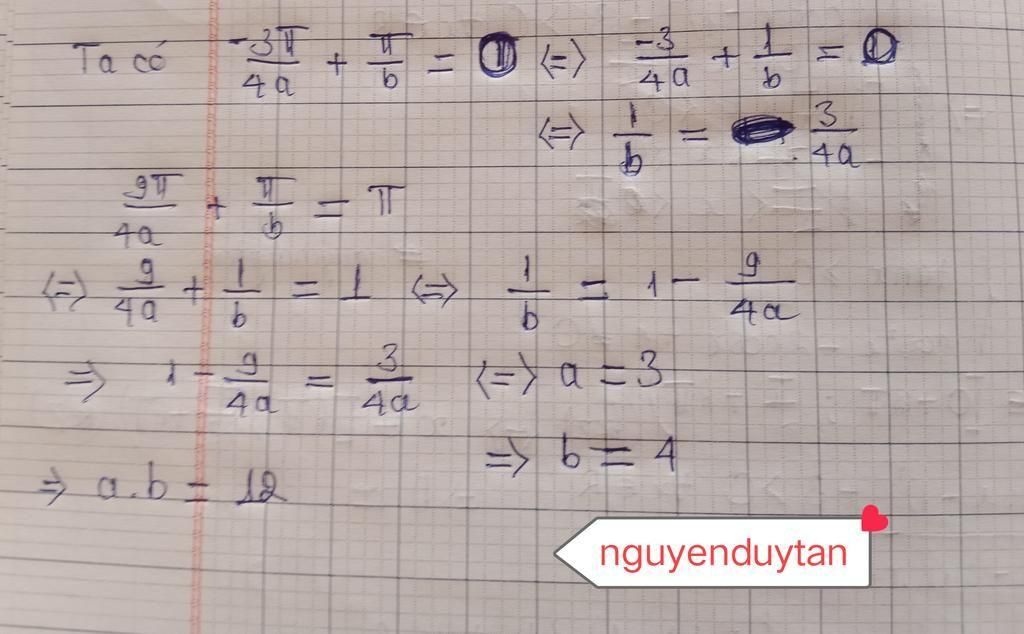 Ta có -3π/4a + π/b = 0 <=> -3/4a + 1/b = 0
<=> 1/b = 3/4a
9π/4a + π/b = π
<=> 9/4a + 1/b = 1 <=> 1/b = 1 - 9/4a
=> 1 - 9/4a = 3/4a <=> a = 3
=> b = 4
=> a.b = 12
nguyenduytan